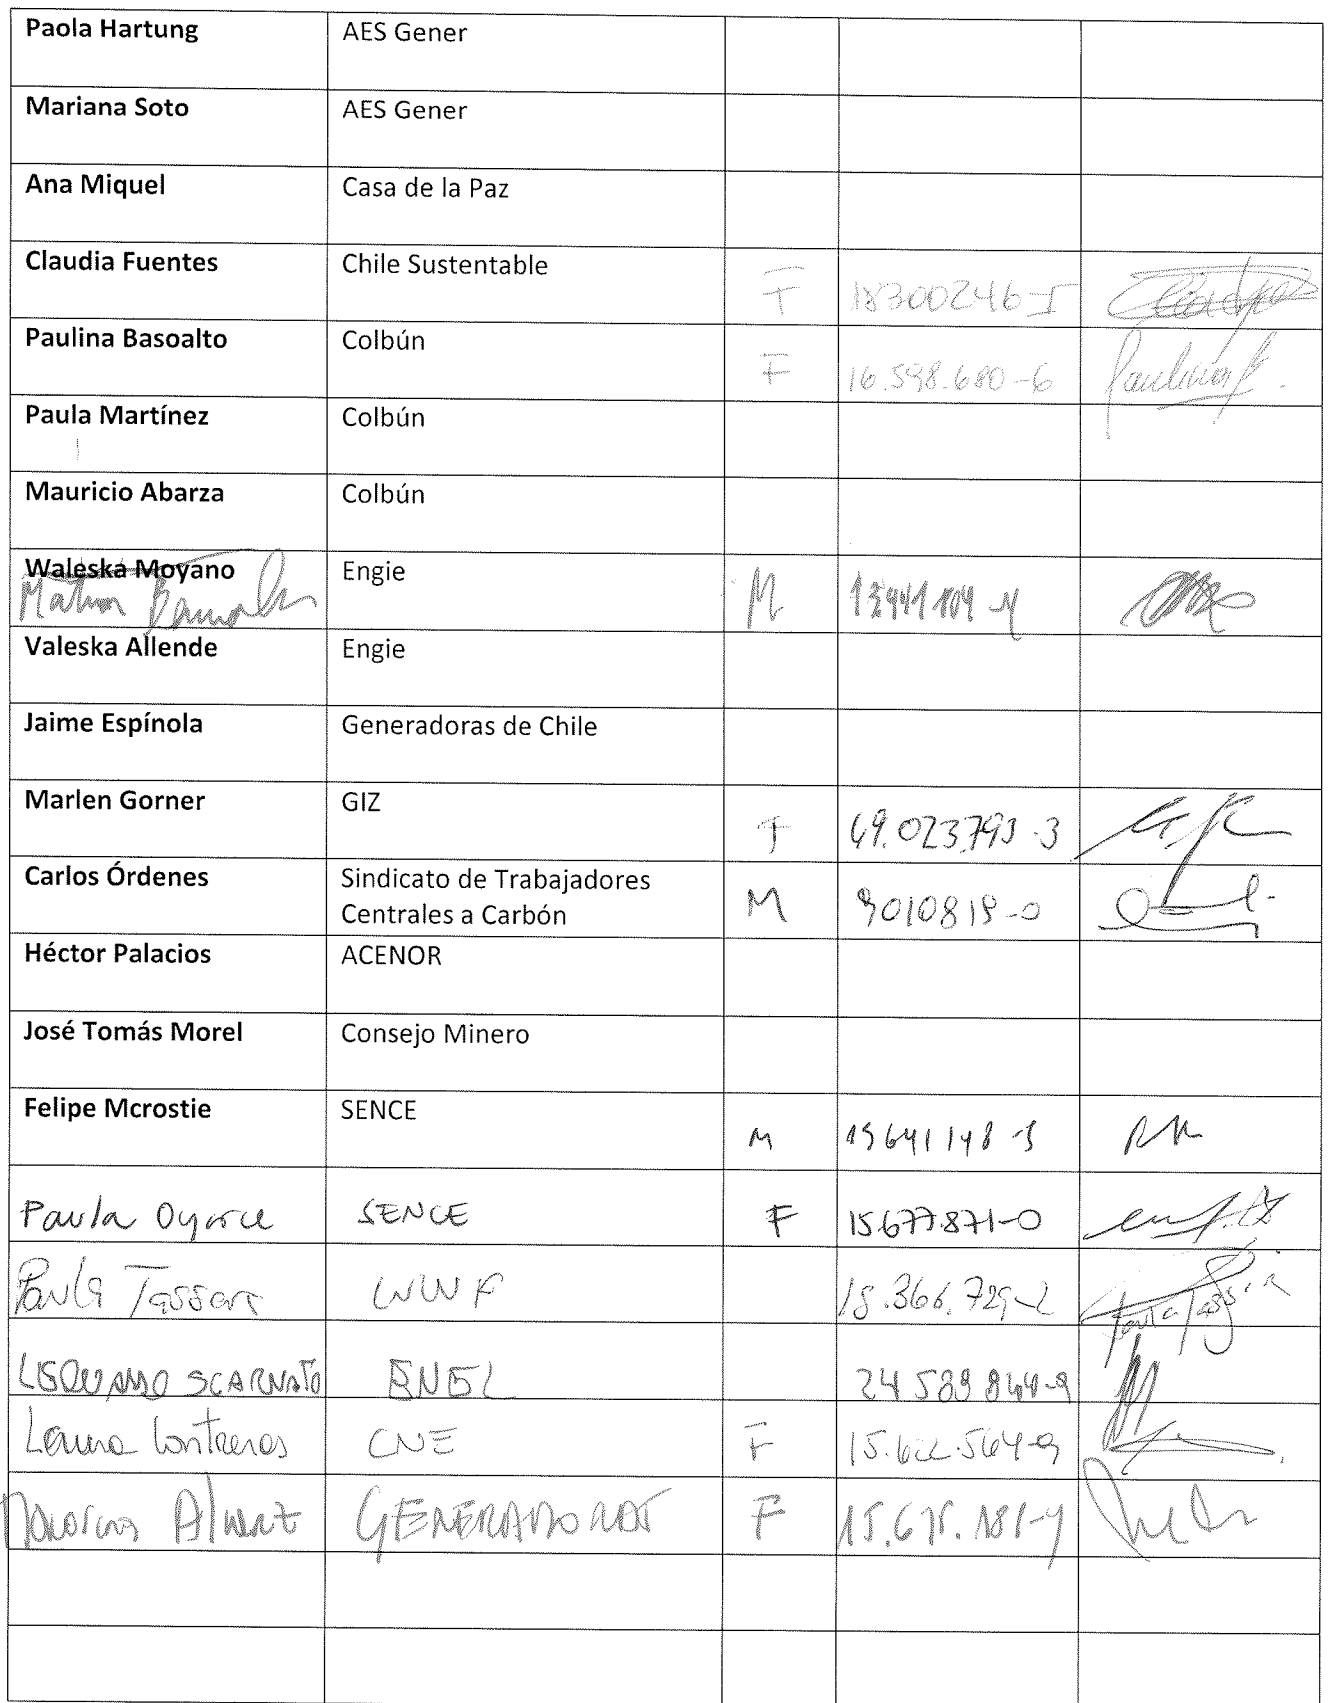 Paola Hartung AES Gener
Mariana Soto AES Gener
Ana Miquel Casa de la Paz
Claudia Fuentes Chile Sustentable F 18300246-5
Paulina Basoalto Colbún F 16.598.680-6
Paula Martínez Colbún
Mauricio Abarza Colbún
Waleska Moyano Engie M
Valeska Allende Engie
Jaime Espínola Generadoras de Chile
Marlen Gorner GIZ F 49.023.793-3
Carlos Órdenes Sindicato de Trabajadores
Centrales a Carbón M
Héctor Palacios ACENOR
José Tomás Morel Consejo Minero
Felipe Mcrostie SENCE M
Paula Oyarce SENCE F 15.677.871-0
Paula Tassara WWF 18.366.729-2
SCARNATO ENEL
Laura Contreras CNE F
F